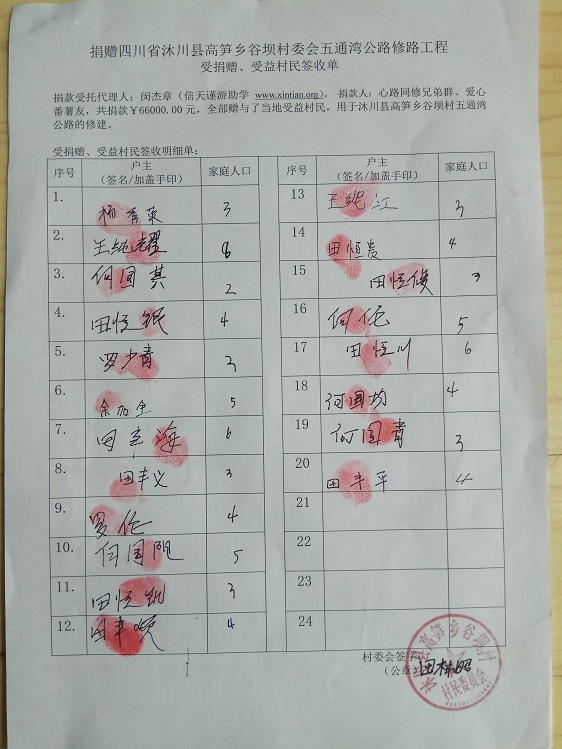 捐赠四川省沐川县高笋乡谷坝村委会五通湾公路修路工程
受捐赠、受益村民签收单
捐款受托代理人：闵杰章（信天谨游助学 www.xintian.org）。 捐款人：心路同修兄弟群、爱心
番薯友，共捐款￥66000.00 元，全部赠与了当地受益村民，用于沐川县高笋乡谷坝村五通湾
公路的修建。
受捐赠、受益村民签收明细单：
序号 户主（签名/加盖手印） 家庭人口
1. 杨秀英 3
2. 王纯耀 8
3. 何国其 2
4. 田恒银 4
5. 罗少青 3
6. 余加全 5
7. 田丰海 6
8. 田丰义 3
9. 罗伦 4
10. 何国阳 5
11. 田恒凯 3
12. 田丰 4
序号 户主（签名/加盖手印） 家庭人口
13 王 江 3
14 田恒贵 4
15 田恒俊 3
16 何伦 5
17 田恒川 6
18 何国均 4
19 何国青 3
20 田丰平 4
21
22
23
24
村委会签字
（公章） 田桂昭
沐川县高笋乡谷坝村
村民委员会